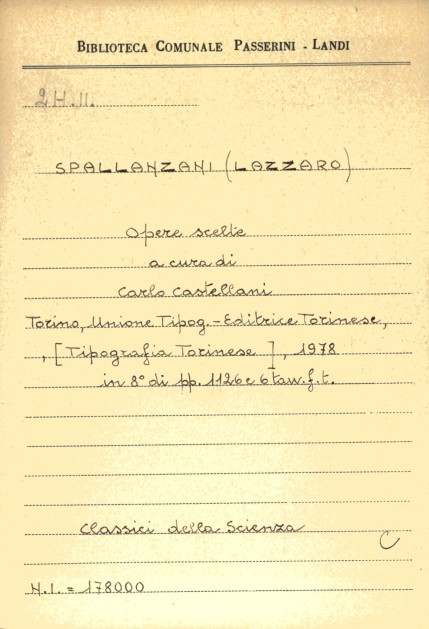 BIBLIOTECA COMUNALE PASSERINI - LANDI
2H.11.
SPALLANZANI (LAZZARO)
Opere scelte
a cura di
Carlo Castellani
Torino, Unione Tipog.-Editrice Torinese,
, [Tipografia Torinese], 1978
in 8° di pp. 1126 e 6 tav. f. t.
Classici della Scienza
C
N.I. = 178000